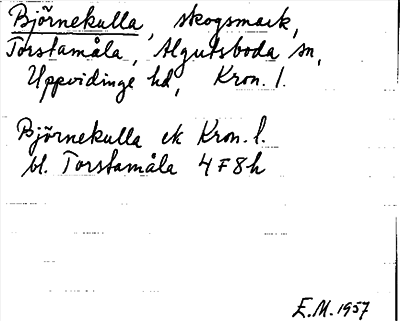 Björnekulla, skogsmark,
Torstamåla, Algutsboda sn,
Uppvidinge hd, Kron. l.
Björnekulla ek Kron. l.
bl. Torstamåla 4F8h
E.M. 1957